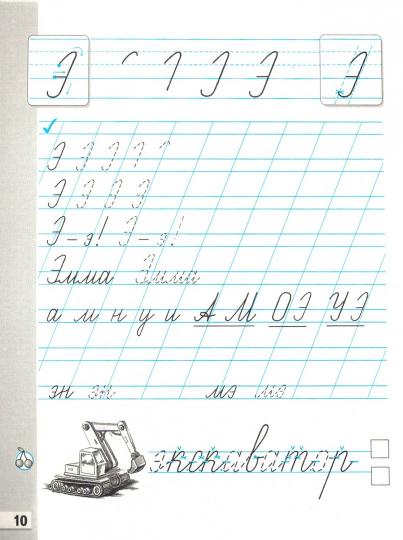 Э Э Э
Э Э Э
Э Э Э Э
Э – э! Э – э!
Эмма Эмма
а м н у и А М О Э У Э
эн эн мэ мэ
экскаватор
10